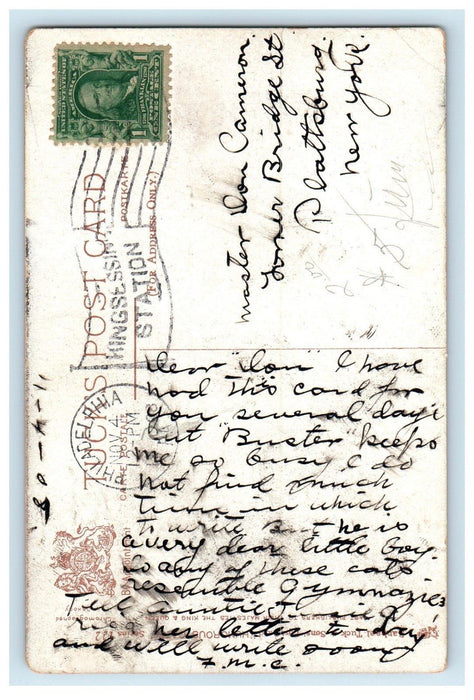 Master Don Cameron
Bridge St
Plattsburg.
New York.
UNITED STATES OF AMERICA
ONE CENT
TUCK'S POST CARD
CARTE POSTALE
POSTKARTE
(FOR ADDRESS ONLY.)
KINGSESSING
STATION
PHILADELPHIA
NOV 4
PM
11-4-08
Dear "Don" I have
had this card for
you several days
but "Buster" keeps
me so busy I do
not find much
time in which
to write But he is
a very dear little boy.
do any of these cats
resemble Gymnazie?
Tell auntie I
rec'd her letter to-day
and will write soon
F.M.C.
Raphael Tuck & Sons'
Series 122